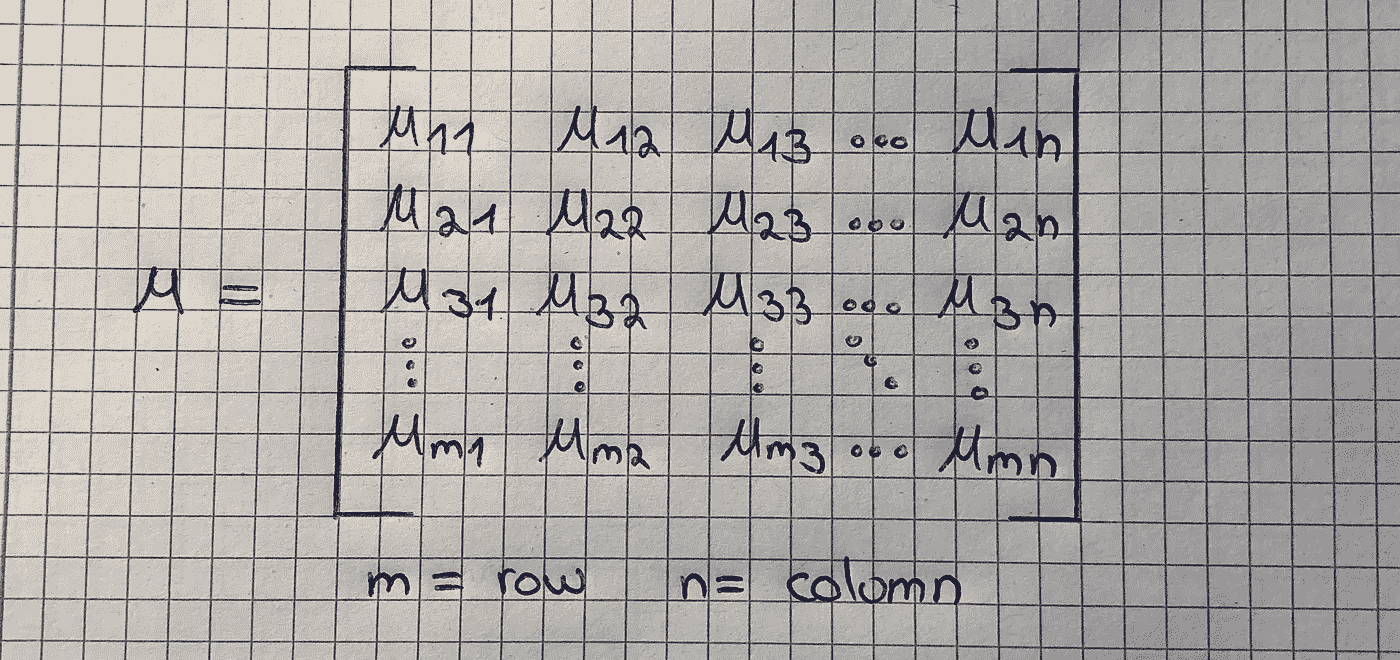 M11 M12 M13 ... M1n
M21 M22 M23 ... M2n
M = M31 M32 M33 ... M3n
⋮ ⋮ ⋮ ⋱ ⋮
Mm1 Mm2 Mm3 ... Mmn
m = row n = colomn